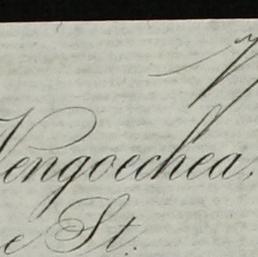 Vengoechea,
e St.